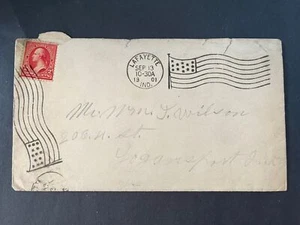 LAFAYETTE
SEP 13
10-30A
13 01
IND.
Mr. Wm. S. Wilson
St.
Logansport Ind.